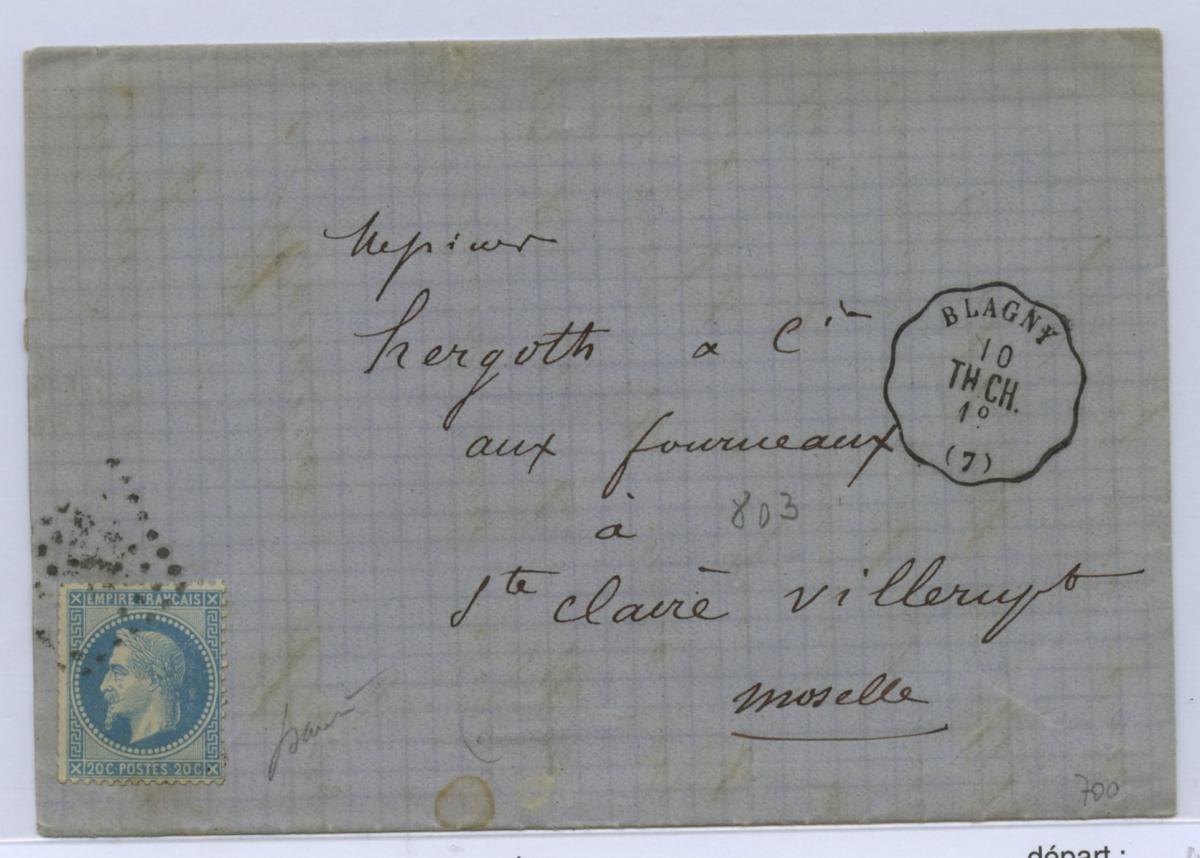 Messieurs
hergoth & Cie
aux fourneaux
à
Ste Claire Villerupt
Moselle
BLAGNY
10
TH.CH.
1º
(7)
803
EMPIRE FRANCAIS
20C POSTES 20C
700
départ :